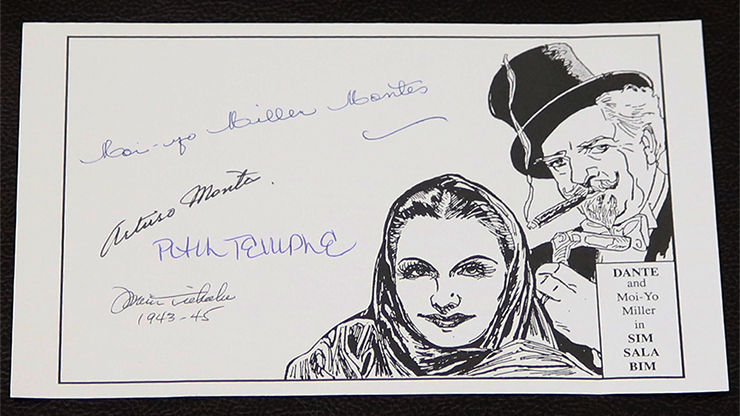 Moi-yo Miller Montes
Arturo Montes
TEMPLE
1943-45
DANTE
and
Moi-Yo
Miller
in
SIM
SALA
BIM